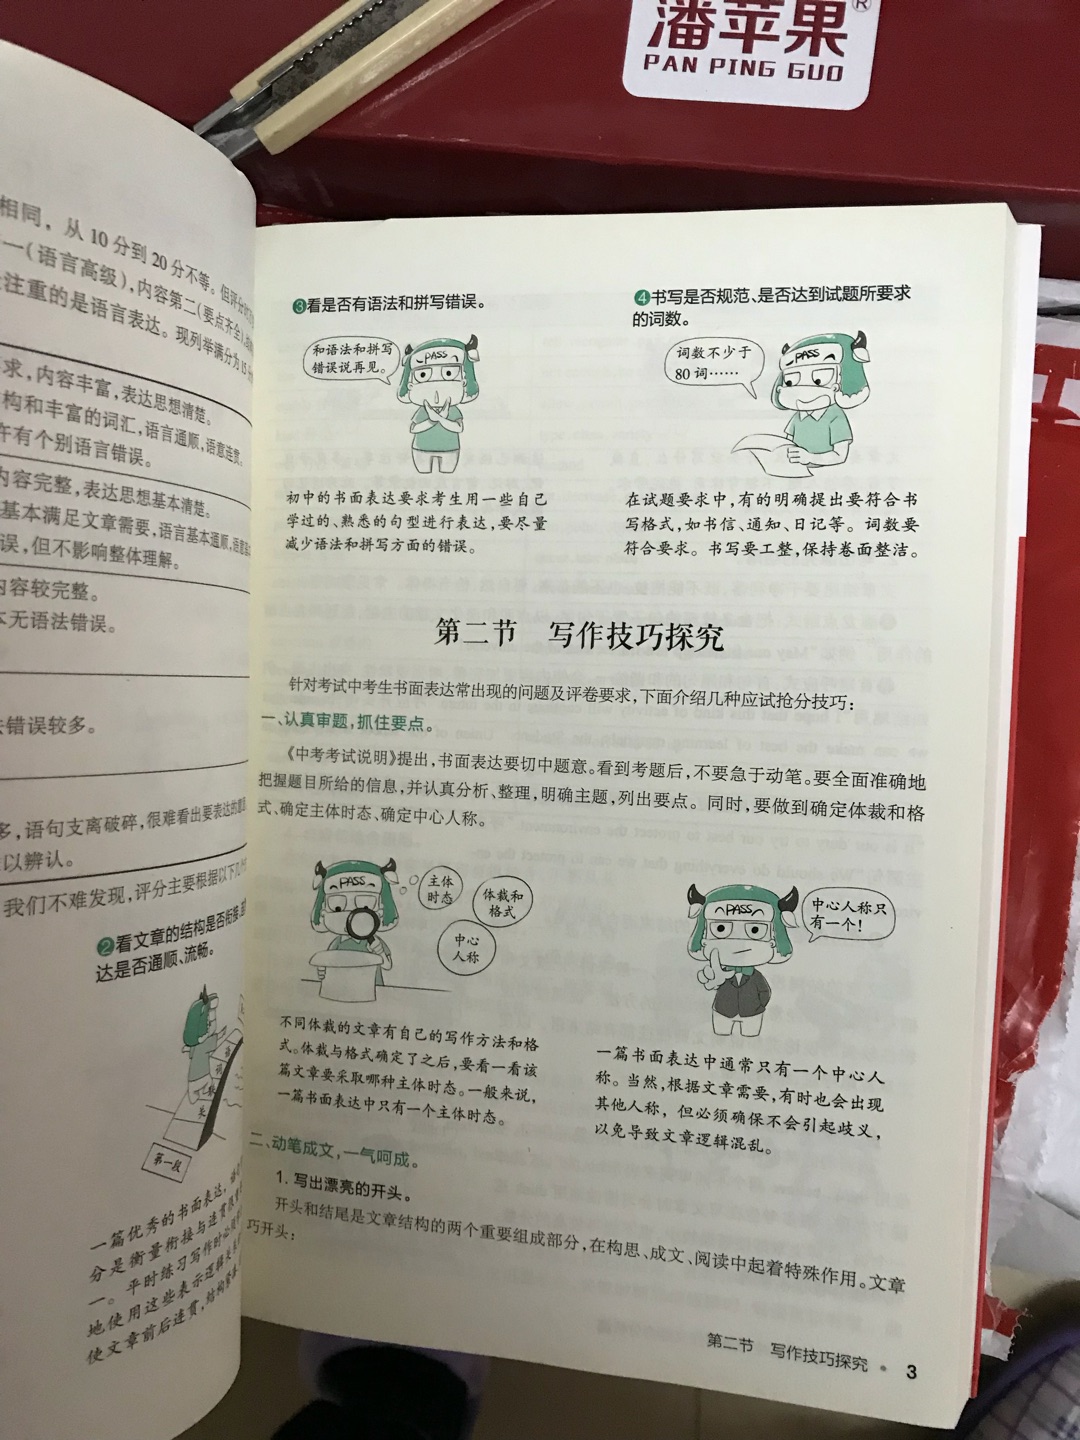 潘苹果
PAN PING GUO
相同，从10分到20分不等。但评分
一(语言高级)，内容第二(要点齐全)
注重的是语言表达。现列举满分为15分
求，内容丰富，表达思想清楚。
构和丰富的词汇，语言通顺，语意连贯。
许有个别语言错误。
内容完整，表达思想基本清楚。
基本满足文章需要，语言基本通顺，语意基
误，但不影响整体理解。
内容较完整。
本无语法错误。
法错误较多。
多，语句支离破碎，很难看出要表达的意
以辨认。
我们不难发现，评分主要根据以下几
❷看文章的结构是否衔接，
达是否通顺、流畅。
第一段
一篇优秀的书面表达，
分是衡量衔接与连贯
一。平时练习写作时必须
地使用这些表示逻辑关
使文章前后连贯，结构
❸看是否有语法和拼写错误。
和语法和拼写
错误说再见。
PASS
初中的书面表达要求考生用一些自己
学过的、熟悉的句型进行表达，要尽量
减少语法和拼写方面的错误。
❹书写是否规范、是否达到试题所要求
的词数。
词数不少于
80词……
PASS
在试题要求中，有的明确提出要符合书
写格式，如书信、通知、日记等。词数要
符合要求。书写要工整，保持卷面整洁。
第二节 写作技巧探究
针对考试中考生书面表达常出现的问题及评卷要求，下面介绍几种应试抢分技巧：
一、认真审题，抓住要点。
《中考考试说明》提出，书面表达要切中题意。看到考题后，不要急于动笔。要全面准确地
把握题目所给的信息，并认真分析、整理，明确主题，列出要点。同时，要做到确定体裁和格
式、确定主体时态、确定中心人称。
PASS
主体
时态
体裁和
格式
中心
人称
不同体裁的文章有自己的写作方法和格
式。体裁与格式确定了之后，要看一看该
篇文章要采取哪种主体时态。一般来说，
一篇书面表达中只有一个主体时态。
PASS
中心人称只
有一个！
一篇书面表达中通常只有一个中心人
称。当然，根据文章需要，有时也会出现
其他人称，但必须确保不会引起歧义，
以免导致文章逻辑混乱。
二、动笔成文，一气呵成。
1. 写出漂亮的开头。
开头和结尾是文章结构的两个重要组成部分，在构思、成文、阅读中起着特殊作用。文章
巧开头：
第二节 写作技巧探究 • 3